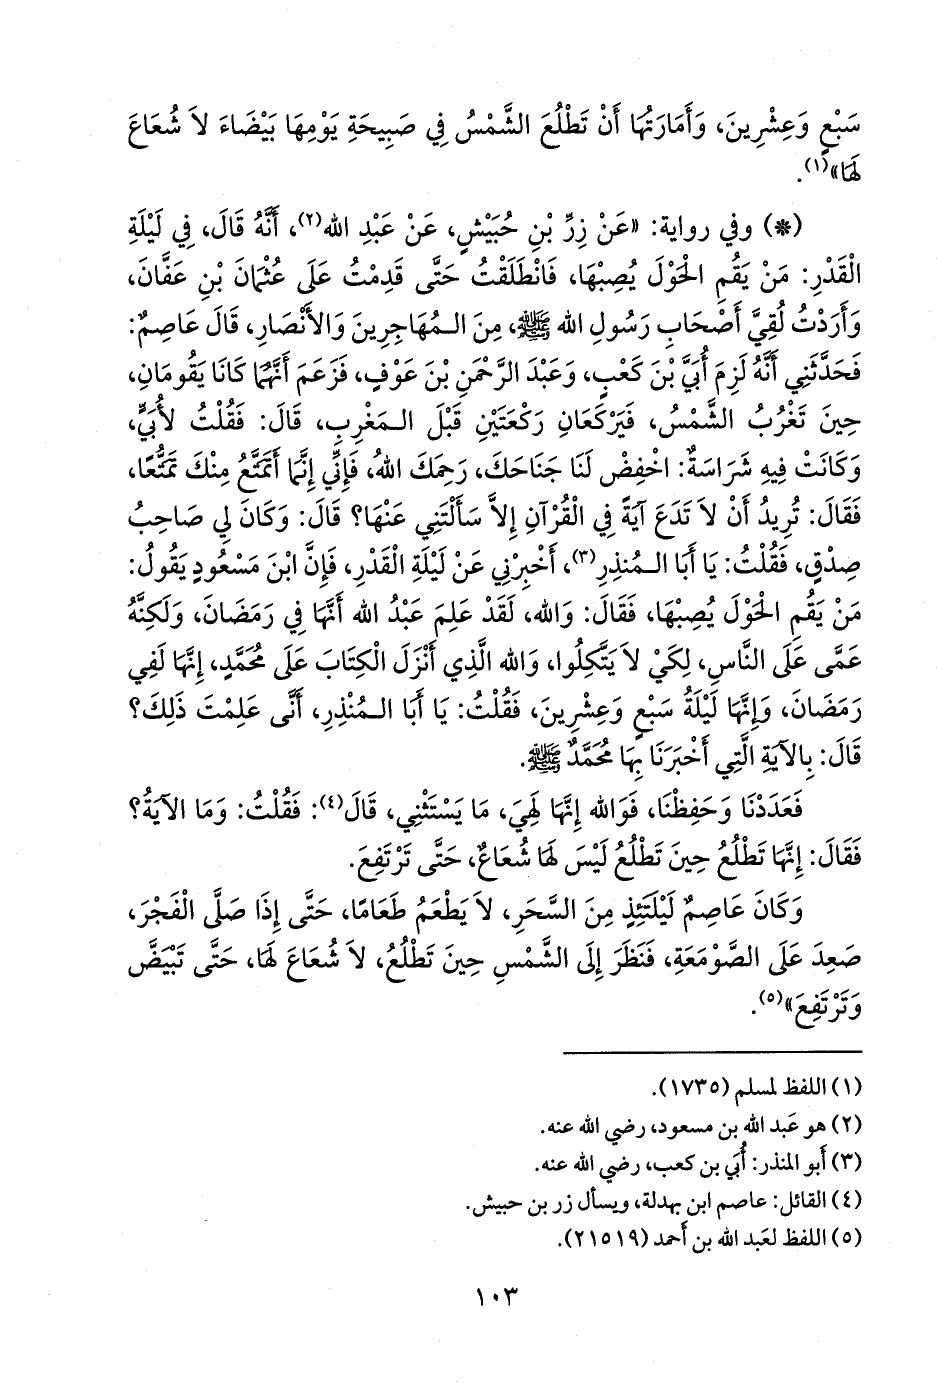 سَبْعٍ وَعِشْرِينَ، وَأَمَارَتُهَا أَنْ تَطْلُعَ الشَّمْسُ فِي صَبِيحَةِ يَوْمِهَا بَيْضَاءَ لاَ شُعَاعَ
لَهَا»(١).
(*) وفي رواية: «عَنْ زِرِّ بْنِ حُبَيْشٍ، عَنْ عَبْدِ الله(٢)، أَنَّهُ قَالَ، فِي لَيْلَةِ
الْقَدْرِ: مَنْ يَقُمِ الْحَوْلَ يُصِبْهَا، فَانْطَلَقْتُ حَتَّى قَدِمْتُ عَلَى عُثْمَانَ بْنِ عَفَّانَ،
وَأَرَدْتُ لُقِيَّ أَصْحَابِ رَسُولِ الله ﷺ، مِنَ الـمُهَاجِرِينَ وَالأَنْصَارِ، قَالَ عَاصِمٌ:
فَحَدَّثَنِي أَنَّهُ لَزِمَ أُبَيَّ بْنَ كَعْبٍ، وَعَبْدَ الرَّحْمَنِ بْنَ عَوْفٍ، فَزَعَمَ أَنَّهُمَا كَانَا يَقُومَانِ،
حِينَ تَغْرُبُ الشَّمْسُ، فَيَرْكَعَانِ رَكْعَتَيْنِ قَبْلَ الـمَغْرِبِ، قَالَ: فَقُلْتُ لأُبَيٍّ،
وَكَانَتْ فِيهِ شَرَاسَةٌ: اخْفِضْ لَنَا جَنَاحَكَ، رَحِمَكَ اللهُ، فَإِنِّي إِنَّمَا أَتَمَتَّعُ مِنْكَ تَمَتُّعًا،
فَقَالَ: تُرِيدُ أَنْ لاَ تَدَعَ آيَةً فِي الْقُرْآنِ إِلاَّ سَأَلْتَنِي عَنْهَا؟ قَالَ: وَكَانَ لِي صَاحِبُ
صِدْقٍ، فَقُلْتُ: يَا أَبَا الـمُنْذِرِ(٣)، أَخْبِرْنِي عَنْ لَيْلَةِ الْقَدْرِ، فَإِنَّ ابْنَ مَسْعُودٍ يَقُولُ:
مَنْ يَقُمِ الْحَوْلَ يُصِبْهَا، فَقَالَ: وَالله، لَقَدْ عَلِمَ عَبْدُ الله أَنَّهَا فِي رَمَضَانَ، وَلَكِنَّهُ
عَمَّى عَلَى النَّاسِ، لِكَيْ لاَ يَتَّكِلُوا، وَالله الَّذِي أَنْزَلَ الْكِتَابَ عَلَى مُحَمَّدٍ، إِنَّهَا لَفِي
رَمَضَانَ، وَإِنَّهَا لَيْلَةُ سَبْعٍ وَعِشْرِينَ، فَقُلْتُ: يَا أَبَا الـمُنْذِرِ، أَنَّى عَلِمْتَ ذَلِكَ؟
قَالَ: بِالآيَةِ الَّتِي أَخْبَرَنَا بِهَا مُحَمَّدٌ ﷺ.
فَعَدَدْنَا وَحَفِظْنَا، فَوَالله إِنَّهَا لَهِيَ، مَا يَسْتَثْنِي، قَالَ(٤): فَقُلْتُ: وَمَا الآيَةُ؟
فَقَالَ: إِنَّهَا تَطْلُعُ حِينَ تَطْلُعُ لَيْسَ لَهَا شُعَاعٌ، حَتَّى تَرْتَفِعَ.
وَكَانَ عَاصِمٌ لَيْلَتَئِذٍ مِنَ السَّحَرِ، لاَ يَطْعَمُ طَعَامًا، حَتَّى إِذَا صَلَّى الْفَجْرَ،
صَعِدَ عَلَى الصَّوْمَعَةِ، فَنَظَرَ إِلَى الشَّمْسِ حِينَ تَطْلُعُ، لاَ شُعَاعَ لَهَا، حَتَّى تَبْيَضَّ
وَتَرْتَفِعَ»(٥).
(١) اللفظ لمسلم (١٧٣٥).
(٢) هو عَبد الله بن مسعود، رضي الله عنه.
(٣) أَبو المنذر: أُبَي بن كعب، رضي الله عنه.
(٤) القائل: عاصم ابن بهدلة، ويسأل زر بن حبيش.
(٥) اللفظ لعَبد الله بن أَحمد (٢١٥١٩).
١٠٣